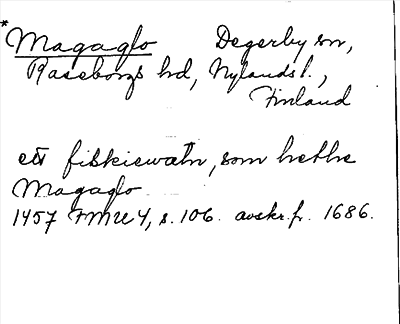 *Magaglo Degerby sn,
Raseborgs hd, Nylands l.,
Finland
ett fiskiewatn, som hethe
Magaglo
1457 FMU 4, s. 106. avskr. fr. 1686.